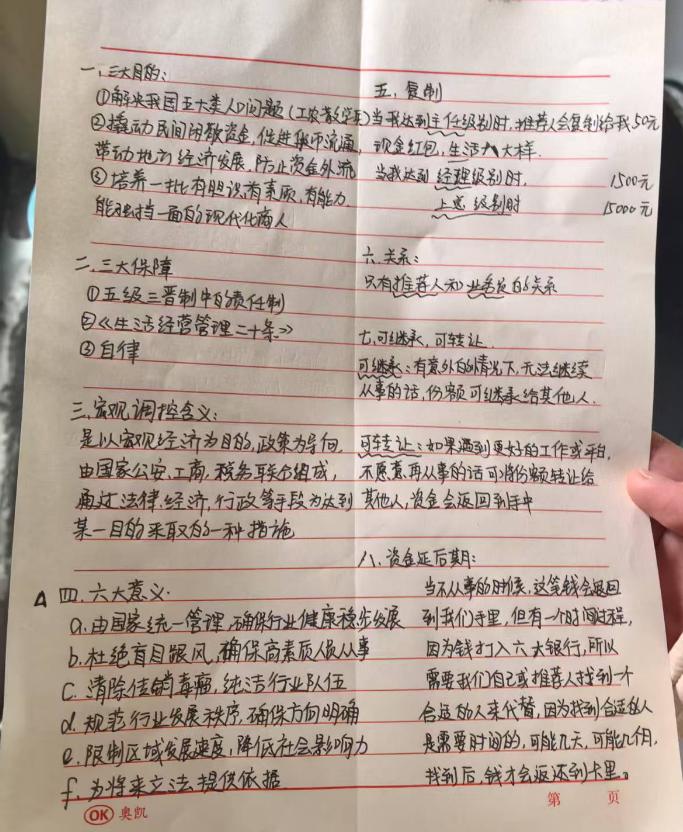 一、三大目的：
①解决我国五大类人口问题（工农教学军）
②撬动民间闭散资金，促进货币流通，
带动地方经济发展，防止资金外流
③培养一批有胆识有素质，有能力
能独挡一面的现代化商人
二、三大保障
①五级三晋制中的责任制
②《生活经营管理二十条》
③自律
三、宏观调控含义：
是以宏观经济为目的，政策为导向，
由国家公安、工商，税务联合组成，
通过法律、经济，行政等手段为达到
某一目的采取的一种措施
四、六大意义·
a.由国家统一管理，确保行业健康稳步发展
b.杜绝盲目跟风，确保高素质人员从事
c.清除传销毒瘤，纯洁行业队伍
d.规范行业发展秩序，确保方向明确
e.限制区域发展速度，降低社会影响力
f.为将来立法提供依据
五、复制
当我达到主任级别时，推荐人会复制给我50元
现金红包，生活八大样.
当我达到经理级别时， 1500元
上总级别时 15000元
六、关系：
只有推荐人和业务员的关系
七、可继承，可转让.
可继承：有意外的情况下，无法继续
从事的话，份额可继承给其他人.
可转让：如果遇到更好的工作或平台，
不愿意再从事的话可将份额转让给
其他人，资金会返回到手中
八、资金延后期：
当不从事的时候，这笔钱会返回
到我们手里，但有一个时间过程，
因为钱打入六大银行，所以
需要我们自己或推荐人找到一个
合适的人来代替，因为找到合适的人
是需要时间的，可能几天，可能几个月，
找到后，钱才会返还到卡里。
OK 奥凯
第 页